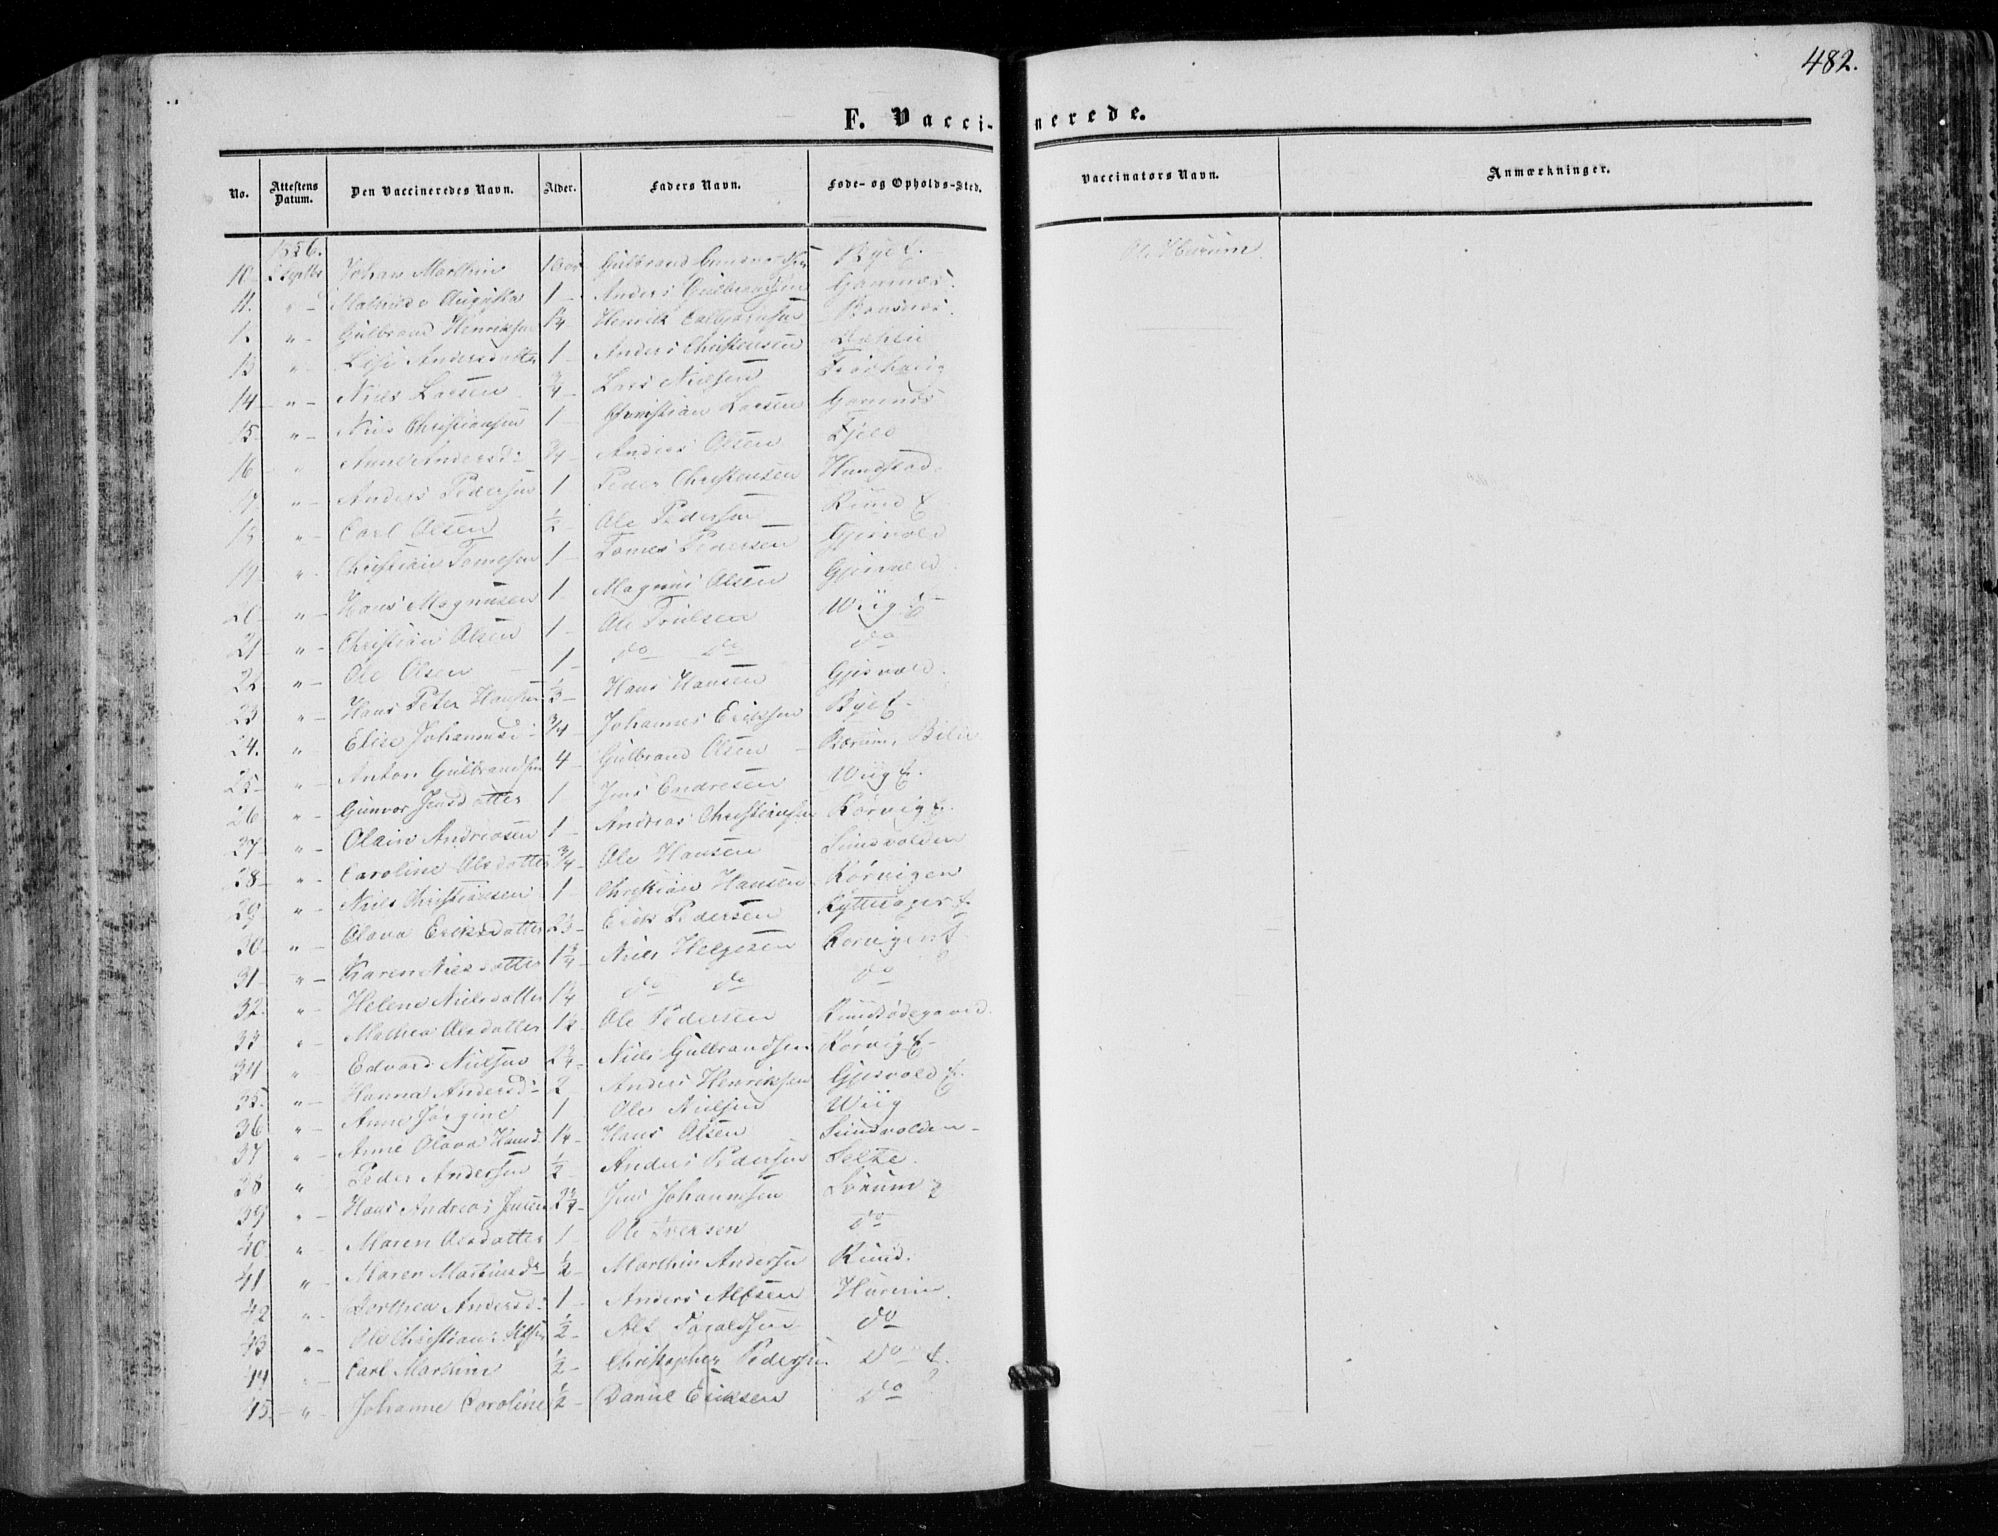 482.
F. Vaccinerede.
No. Attestens Datum. Den Vaccineredes Navn. Alder. Faders Navn. Føde- og Opholds-Sted. Vaccinators Navn. Anmærkninger.
1856.
10 Septbr Johan Marthin Gulbrand Bye f.
11. " Augusta 1 - Anders Gulbrandsen Gomnæs.
" - Gulbrand Henriksen 1¼ Henrik Bønsnæs.
13 " Lise Andersdatter 1 - Anders Christensen
14 - " - Niels Larsen ¾ - Lars Nielsen
15. " - Niels Christiansen 1 - Christian Larsen Gomnæs
16 - " Anne Andersd: ¾ - Anders Olsen Fjeld
17 " - Anders Pedersen 1 Peder Christensen Hungstad.
18 " - Carl Olsen ½ - Ole Pedersen Rund f.
19 " - Christian Tomesen 1 - Tomes Pedersen Gjesvold
20 " - Hans Magnusen 1 - Magnus Olsen Gjesvold
21 " - Christian Olsen 1 - Ole Trulsen Wiig f.
22 " - Ole Olsen 1 - do do do
23 " - Hans Peter Hansen ½ - Hans Hansen Gjesvold.
24. " Elise Johannesd: ¾ - Johannes Eriksen Bye f.
25 - " Anton Gulbrandsen 4 - Gulbrand Olsen - Bærum,
26 " - Gunvor Jensdatter 1 Jens Endresen Wiig f.
27 " - Olain Andreasen 1 - Andreas Christiansen Rørvig f.
28 - " - Caroline Olsdatter ¾ - Ole Hansen Sundvolden
29 " - Niels Christiansen 1 - Christian Hansen Rørvigen
30 - " - Olava Eriksdatter 2½ - Erik Pedersen Rytterager f.
31 " - Karen Nielsdatter 1¾ - Niels Helgesen Rørvigen f
32. " - Helene Nielsdatter 1¼ do do do
33 " Mathea Olsdatter 1½ Ole Pedersen Rundødegaard.
34 " Edvard Nielsen 2¾ - Niels Gulbrandsen Rørvig f -
35. " - Hanna Andersd: 2 - Anders Henriksen Gjesvold f.
36 " - Anne Jørgine 1 Ole Nielsen Wiig
37 " - Anne Olava Hansd. 1¼ - Hans Olsen Sundvolden -
38 " Peder Andersen ½ - Anders Pedersen Selte.
39 " - Hans Andreas Jensen 2¾ - Jens Johannesen Sørum f
40 " - Maren Olsdatter 1 - Ole Iversen do
41 " - Maren Martinsdr ½ - Marthin Andersen Rund.
42 " - Dorthea Andersd: 1 - Anders Alfsen Hurum.
43 " - Ole Christian Alfsen ½ - Alf Toraldsen do
44 " - Carl Marthin ½ - Christopher Pedersen do f.
45. - " - Johanne Caroline ½ - Daniel Eriksen do